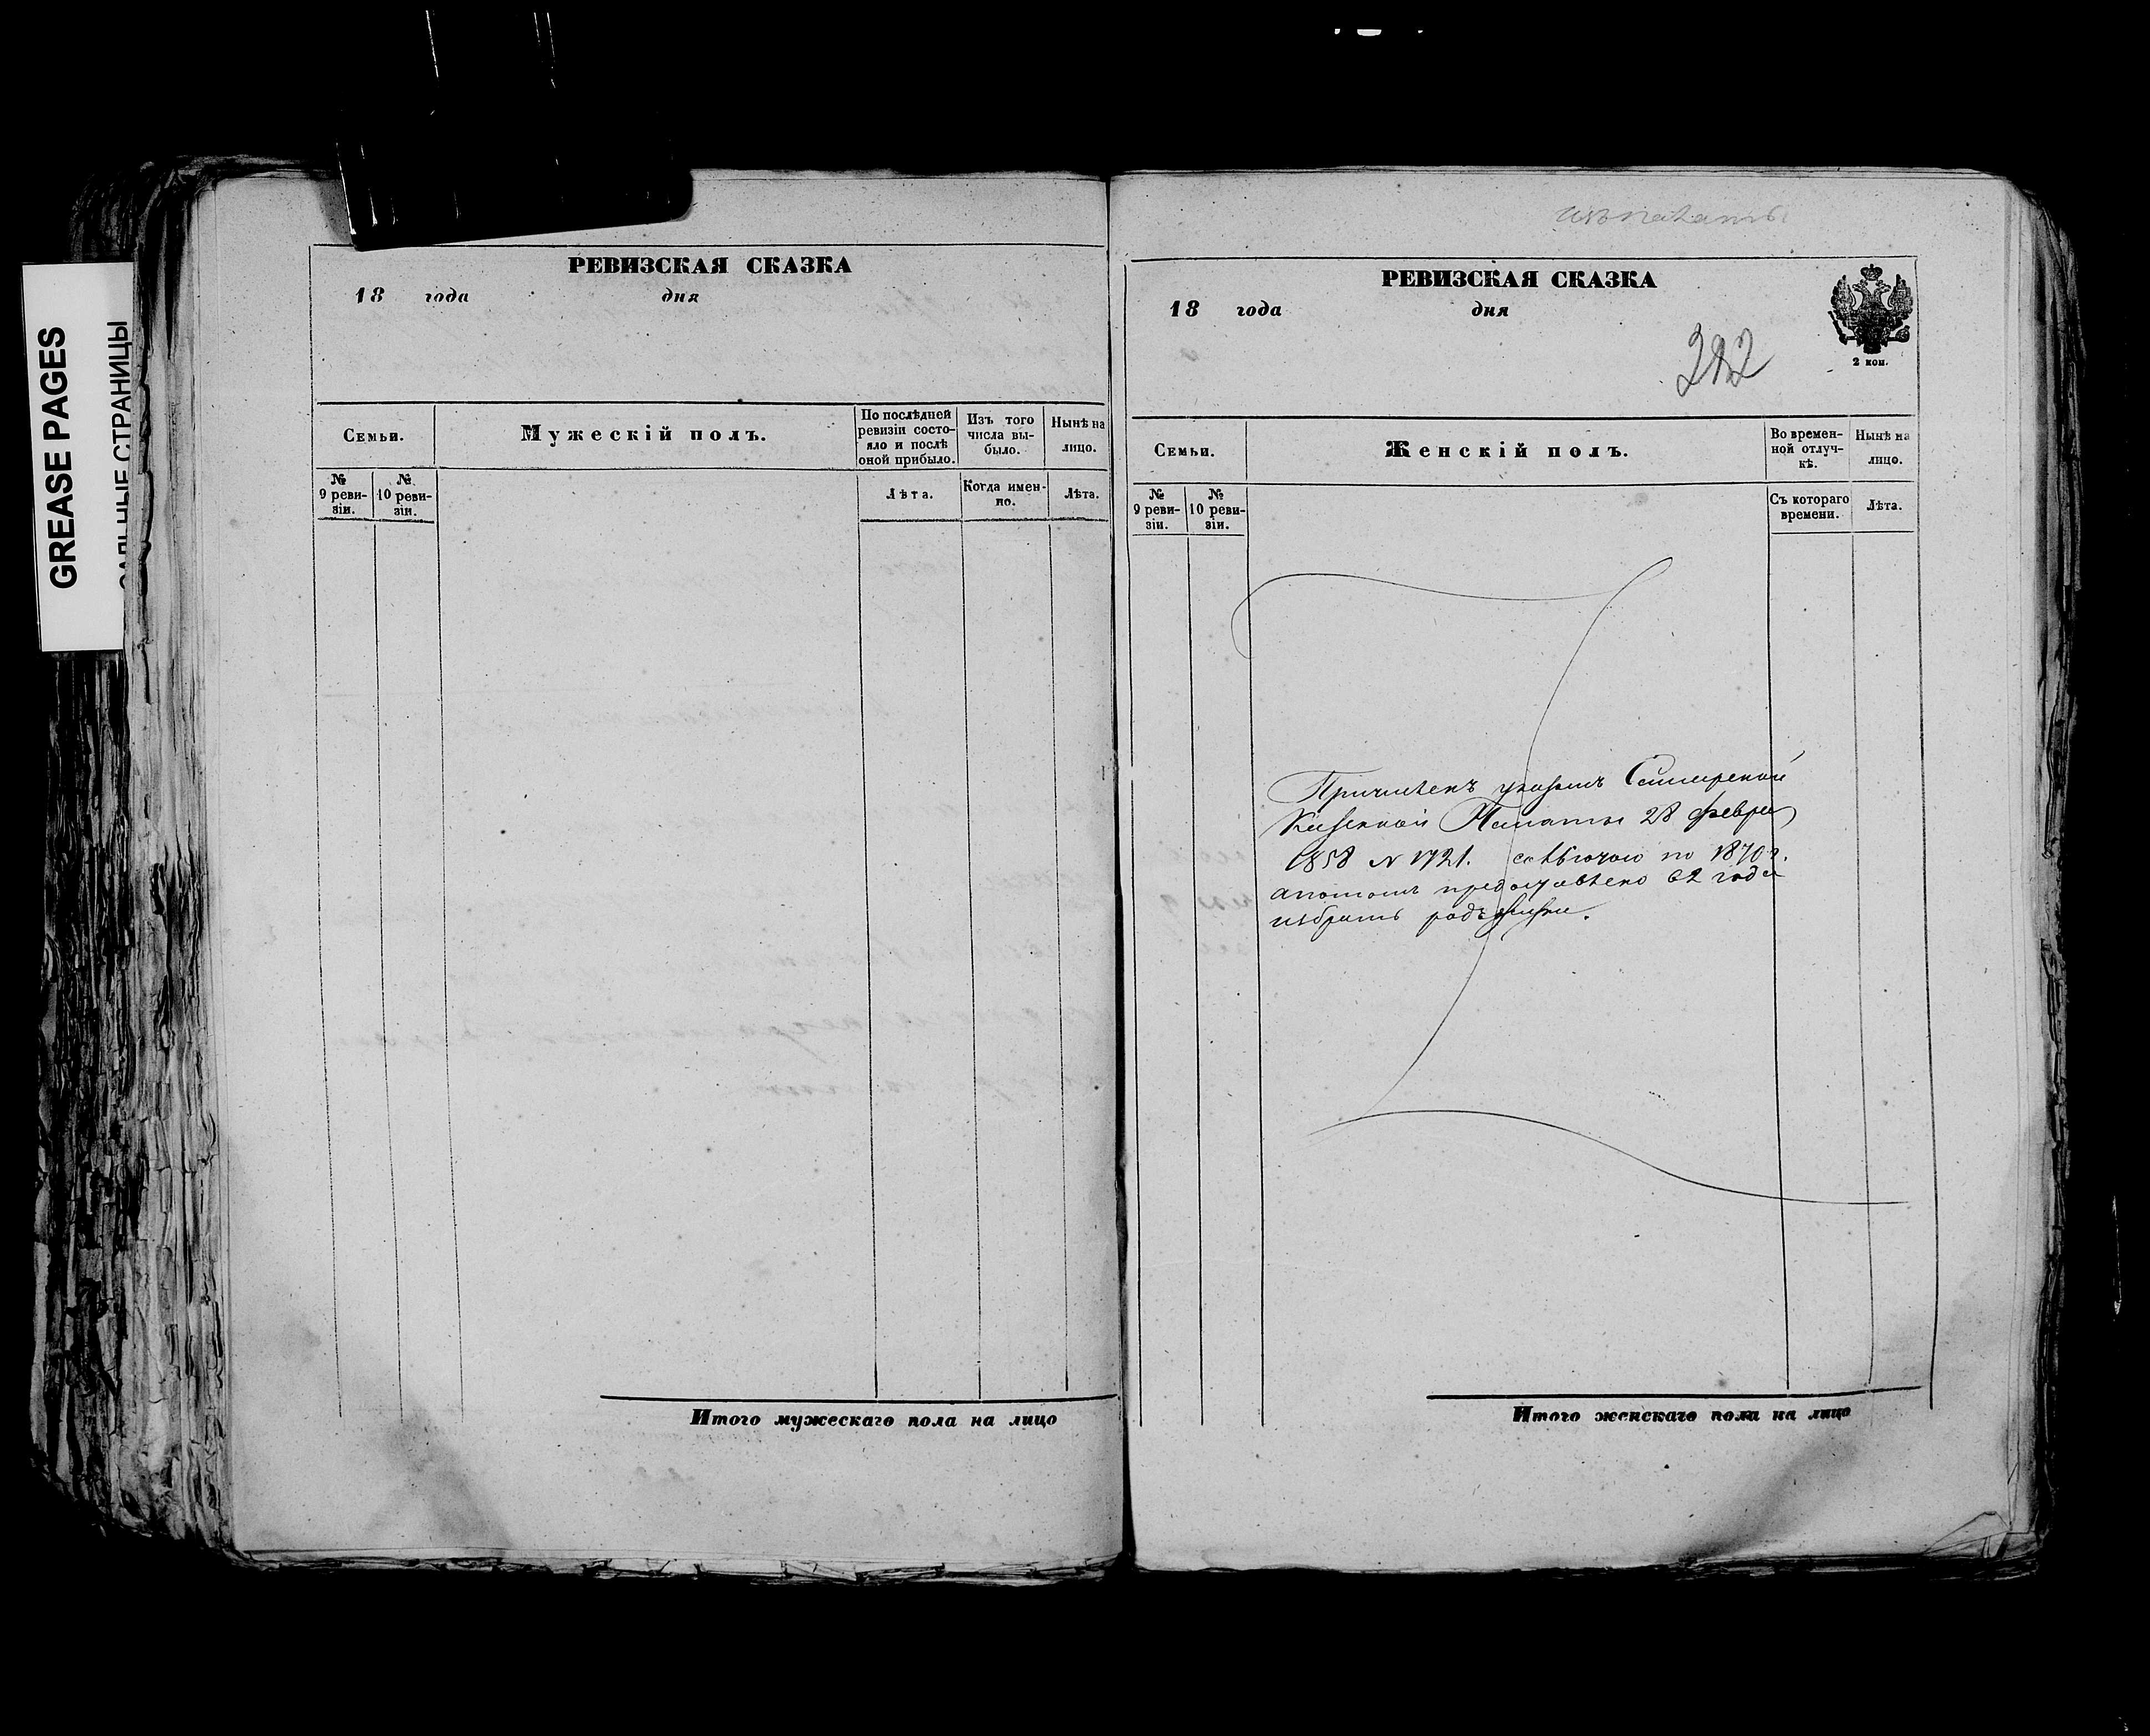 GREASE PAGES
САЛЬНЫЕ СТРАНИЦЫ
РЕВИЗСКАЯ СКАЗКА
18 года дня
Семьи.
Мужескій полъ.
По послѣдней
ревизіи состо-
яло и послѣ
оной прибыло.
Изъ того
числа вы-
было.
Нынѣ на
лицо.
№
9 реви-
зіи.
№
10 реви-
зіи.
Лѣта.
Когда имен-
но.
Лѣта.
Итого мужескаго пола на лицо
РЕВИЗСКАЯ СКАЗКА
18 года дня
2 коп.
Семьи.
Женскій полъ.
Во времен-
ной отлуч-
кѣ.
Нынѣ на
лицо.
№
9 реви-
зіи.
№
10 реви-
зіи.
Съ котораго
времени.
Лѣта.
Причисленъ указомъ Симбирской
Казенной Палаты 28 февра
1858 N 1721. съ льготою по 1870 г.
апотомъ предоставлено 62 года
избрать родъ жизни.
Итого женскаго пола на лицо